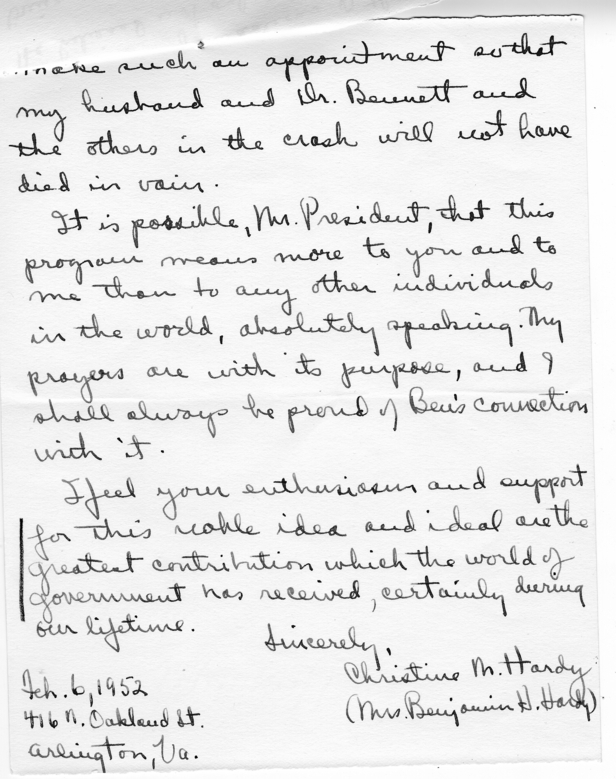 make such an appointment so that
my husband and Dr. Bennett and
the others in the crash will not have
died in vain.
It is possible, Mr. President, that this
program means more to you and to
me than to any other individuals
in the world, absolutely speaking. My
prayers are with its purpose, and I
shall always be proud of Ben's connection
with it.
I feel your enthusiasm and support
for this noble idea and ideal are the
greatest contribution which the world of
government has received, certainly during
our lifetime.
Sincerely,
Christine M. Hardy
(Mrs. Benjamin H. Hardy)
Feb. 6, 1952
416 N. Oakland St.
Arlington, Va.